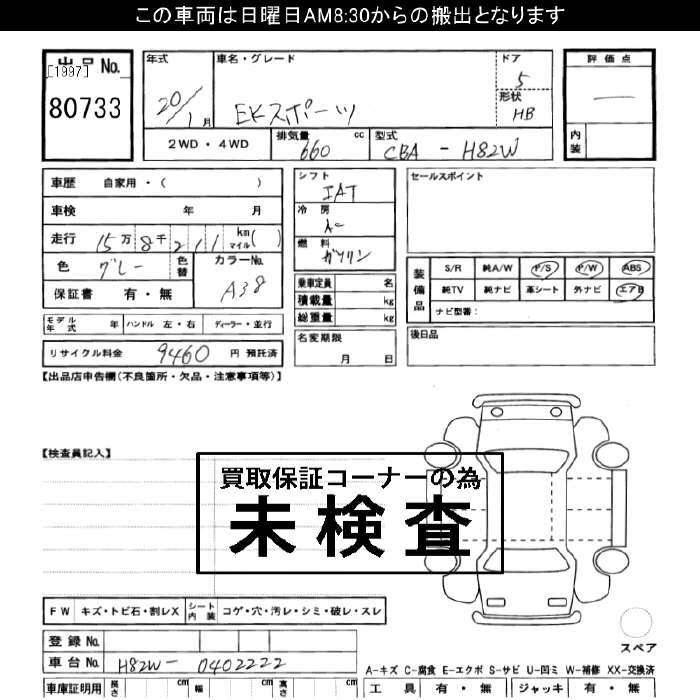 この車両は日曜日AM8:30からの搬出となります
出品No.
[1997]
80733
年式
20/1月
車名・グレード
EKスポーツ
ドア
5
形状
HB
評価点
―
内装
2WD・4WD
排気量
660 cc
型式
CBA - H82W
車歴 自家用・( )
車検 年 月
走行 15万8千211 km マイル( )
色 グレー 色替
カラーNo. A38
保証書 有・無
シフト
IAT
冷房
燃料
ガソリン
乗車定員 名
積載量 kg
総重量 kg
セールスポイント
装備品
S/R 純A/W P/S P/W ABS
純TV 純ナビ 革シート 外ナビ エアB
ナビ型番:
モデル年式 年 ハンドル 左・右 ディーラー・並行
リサイクル料金 9460 円 預託済
名変期限
月 日
後日品
【出品店申告欄(不良箇所・欠品・注意事項等)】
【検査員記入】
買取保証コーナーの為
未検査
FW キズ・トビ石・割レX シート内装 コゲ・穴・汚レ・シミ・破レ・スレ
登録No.
車台No. H82W- 0402222
車庫証明用 長さ cm 幅 cm 高さ cm
スペア
A-キズ C-腐食 E-エクボ S-サビ U-凹ミ W-補修 XX-交換済
工具 有・無 ジャッキ 有・無